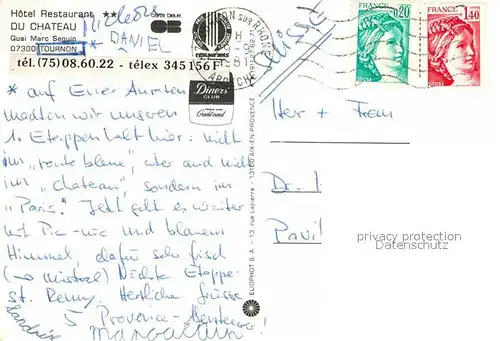 Hôtel Restaurant ★★
DU CHATEAU
Quai Marc Seguin
07300 TOURNON
* DANIEL
carte bleue
tél. (75) 08.60.22 - télex 345 156 F
Diners'
CLUB
TOURNON S/ RHONE
ARDECHE
FRANCE
0,20
FRANCE
1,40
* auf Euer Anraten
machten wir unseren
1. Etappenhalt hier: nicht
im "route bleue", aber auch nicht
im "chateau", sondern im
"Paris". Jetzt geht es weiter
mit Pic-nic und blauem
Himmel, dafür sehr frisch
(→ mistral) Nächste Etappe:
St. Remy. Herzliche Grüsse
5 Provence-Abenteurer!
ELIOPHOT S.A. - 13, rue Lapierre - 13100 AIX-EN-PROVENCE
Herr + Frau
Dr. I
Pavil
privacy protection
Datenschutz